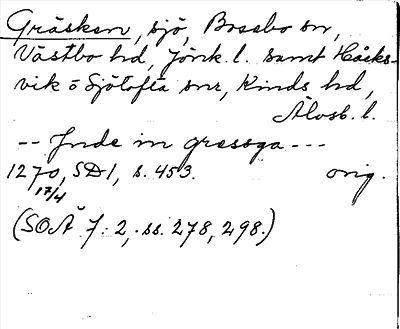 Gräsken, sjö, Bosebo sn,
Västbo hd, Jönk. l. samt Håcks-
vik o Sjötofta snr, Kinds hd,
Älvsb. l.
-- Inde in gressga ---
1270, SD1, s. 453. orig.
17/4
(SOÄ 7:2, ss. 278, 298.)